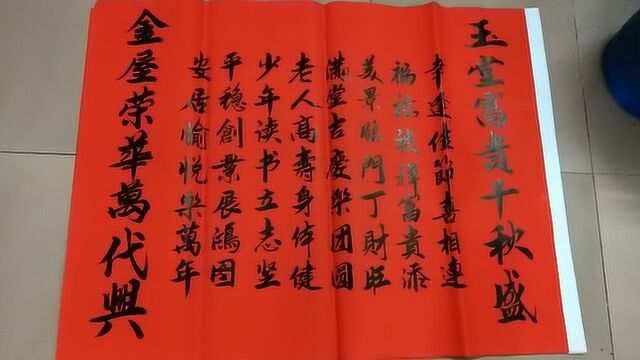 玉堂富貴千秋盛
幸逢佳節喜相連
福禄禎祥富貴添
美景臨門丁財旺
滿堂吉慶樂团圓
老人高壽身体健
少年读书立志坚
平穩創業展鴻图
安居愉悦樂萬年
金屋荣華萬代興